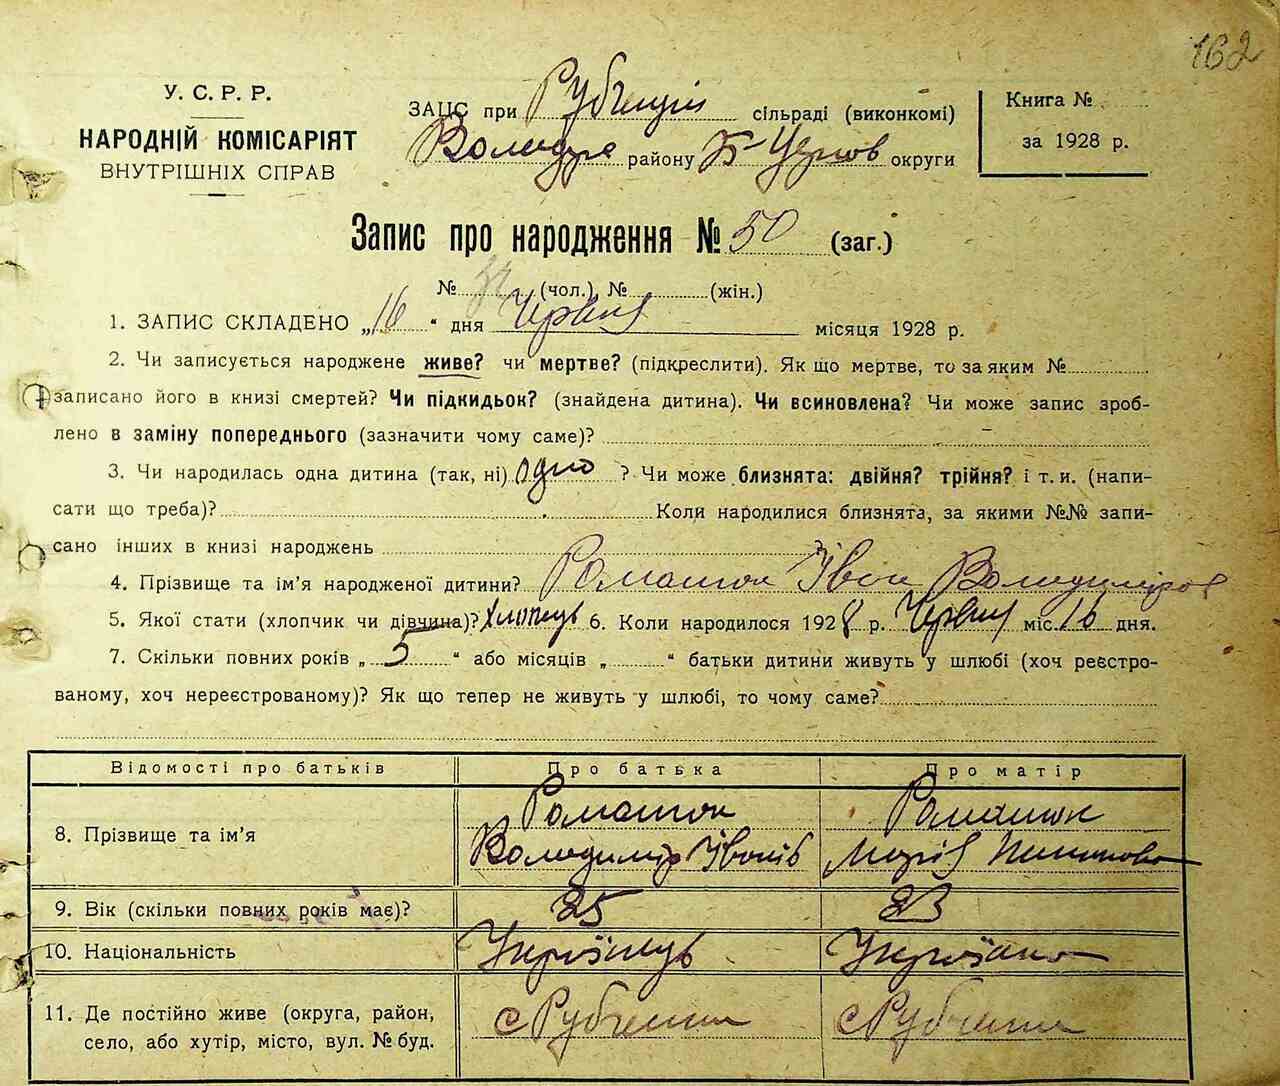 162
У. С. Р. Р.
НАРОДНІЙ КОМІСАРІЯТ
ВНУТРІШНІХ СПРАВ
ЗАЦС при Рубченцій сільраді (виконкомі)
Володар району Б-Церков округи
Книга №
за 1928 р.
Запис про народження № 50 (заг.)
№ (чол.), № (жін.)
1. ЗАПИС СКЛАДЕНО „16“ дня Червня місяця 1928 р.
2. Чи записується народжене живе? чи мертве? (підкреслити). Як що мертве, то за яким №
записано його в книзі смертей? Чи підкидьок? (знайдена дитина). Чи всиновлена? Чи може запис зроб-
лено в заміну попереднього (зазначити чому саме)? –
3. Чи народилась одна дитина (так, ні) одно ? Чи може близнята: двійня? трійня? і т. и. (напи-
сати що треба)? Коли народилися близнята, за якими №№ запи-
сано інших в книзі народжень ?
4. Прізвище та ім’я народженої дитини? Ромашок Іван Володимиров
5. Якої стати (хлопчик чи дівчина)? хлопець 6. Коли народилося 1928 р. Червня міс. 16 дня.
7. Скільки повних років „ 5 “ або місяців „ “ батьки дитини живуть у шлюбі (хоч реєстро-
ваному, хоч нереєстрованому)? Як що тепер не живуть у шлюбі, то чому саме?
Відомості про батьків Про батька Про матір
8. Прізвище та ім’я Ромашок Ромашок
Володимір Іванів Марія
9. Вік (скільки повних років має)? 25 23
10. Національність Українець Українка
11. Де постійно живе (округа, район, с Рубченки с Рубченки
село, або хутір, місто, вул. № буд.